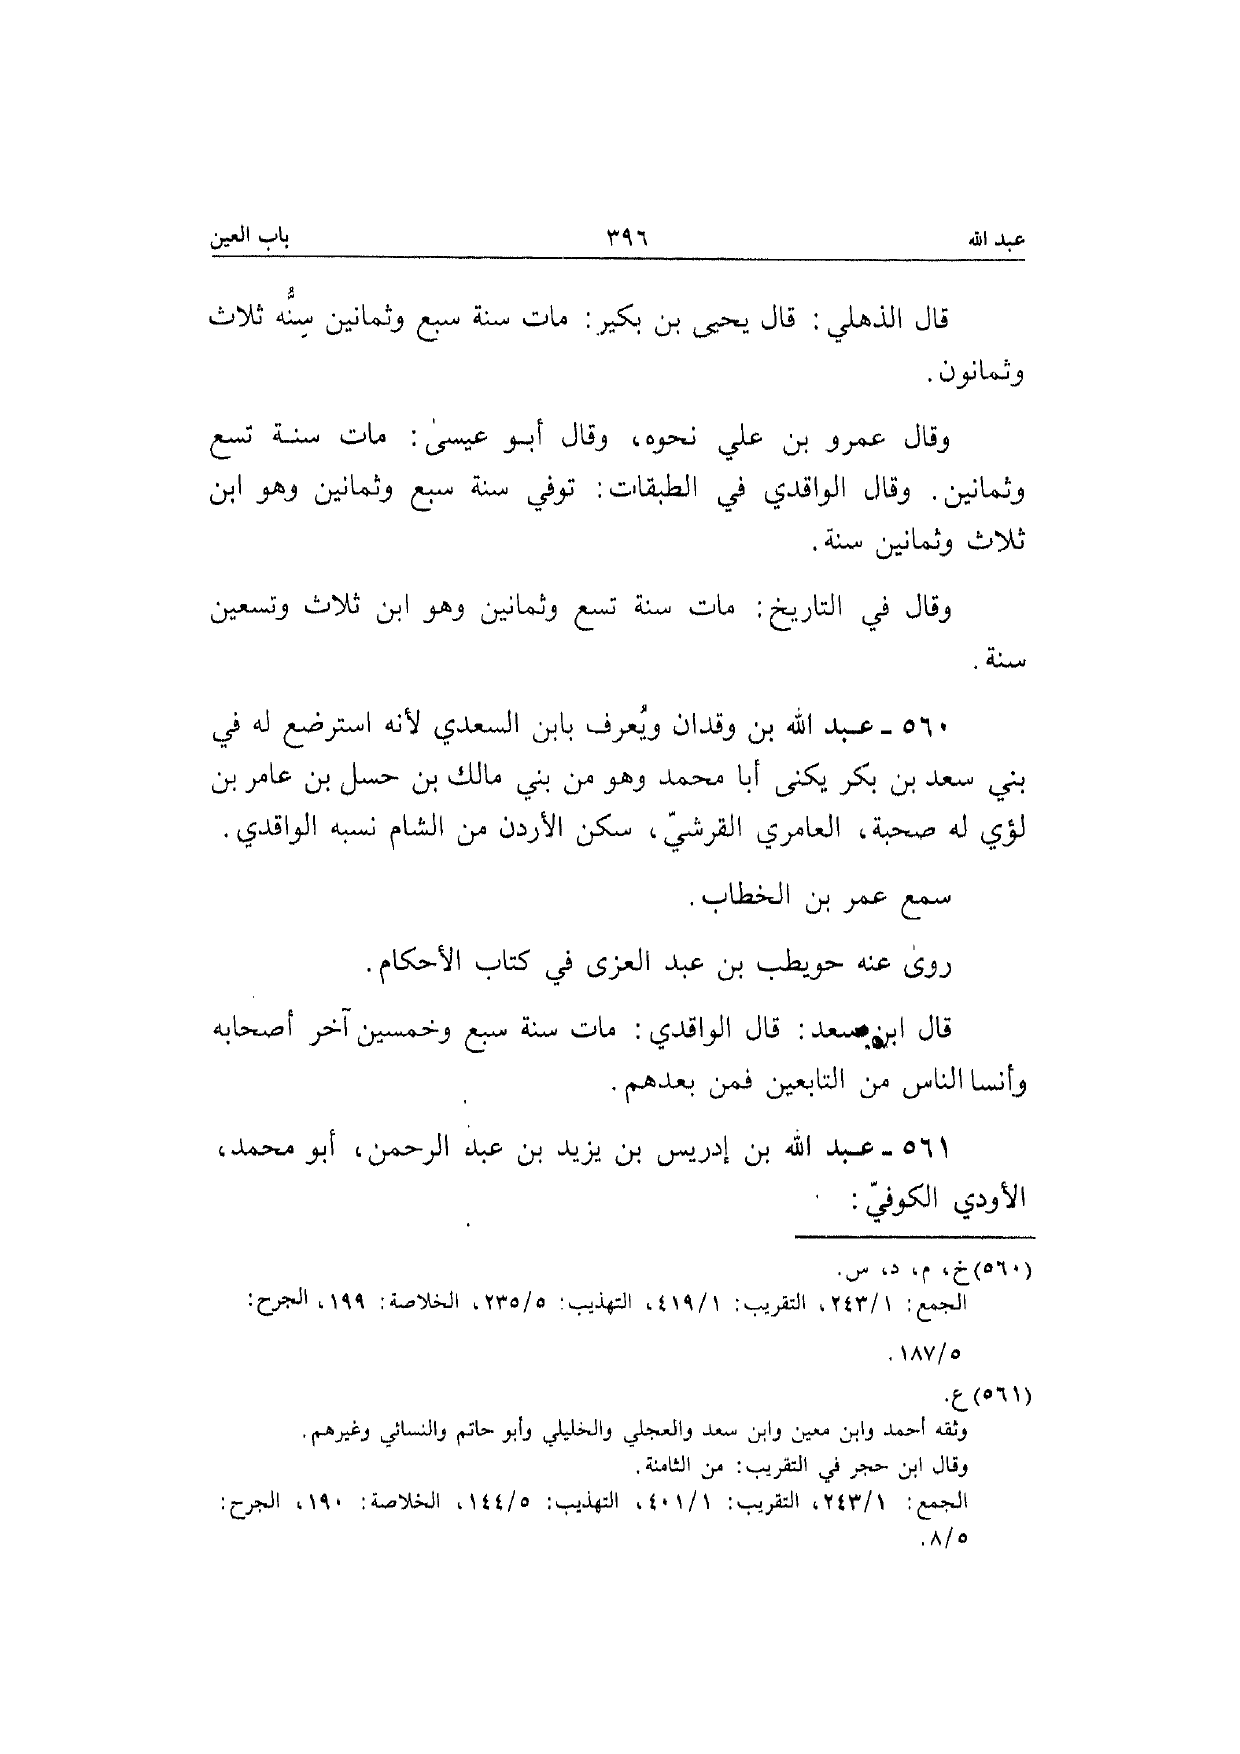 عبد الله ٣٩٦ باب العين
قال الذهلي: قال يحيى بن بكير: مات سنة سبع وثمانين سِنُّه ثلاث
وثمانون.
وقال عمرو بن علي نحوه، وقال أبو عيسىٰ: مات سنة تسع
وثمانين. وقال الواقدي في الطبقات: توفي سنة سبع وثمانين وهو ابن
ثلاث وثمانين سنة.
وقال في التاريخ: مات سنة تسع وثمانين وهو ابن ثلاث وتسعين
سنة.
٥٦٠ ـ عبد الله بن وقدان ويُعرف بابن السعدي لأنه استرضع له في
بني سعد بن بكر يكنى أبا محمد وهو من بني مالك بن حسل بن عامر بن
لؤي له صحبة، العامري القرشيّ، سكن الأردن من الشام نسبه الواقدي.
سمع عمر بن الخطاب.
روىٰ عنه حويطب بن عبد العزى في كتاب الأحكام.
قال ابن سعد: قال الواقدي: مات سنة سبع وخمسين آخر أصحابه
وأنسا الناس من التابعين فمن بعدهم.
٥٦١ ـ عبد الله بن إدريس بن يزيد بن عبد الرحمن، أبو محمد،
الأودي الكوفيّ:
(٥٦٠) خ، م، د، س.
الجمع: ٢٤٣/١، التقريب: ٤١٩/١، التهذيب: ٢٣٥/٥، الخلاصة: ١٩٩، الجرح:
١٨٧/٥.
(٥٦١) ع.
وثقه أحمد وابن معين وابن سعد والعجلي والخليلي وأبو حاتم والنسائي وغيرهم.
وقال ابن حجر في التقريب: من الثامنة.
الجمع: ٢٤٣/١، التقريب: ٤٠١/١، التهذيب: ١٤٤/٥، الخلاصة: ١٩٠، الجرح:
٨/٥.